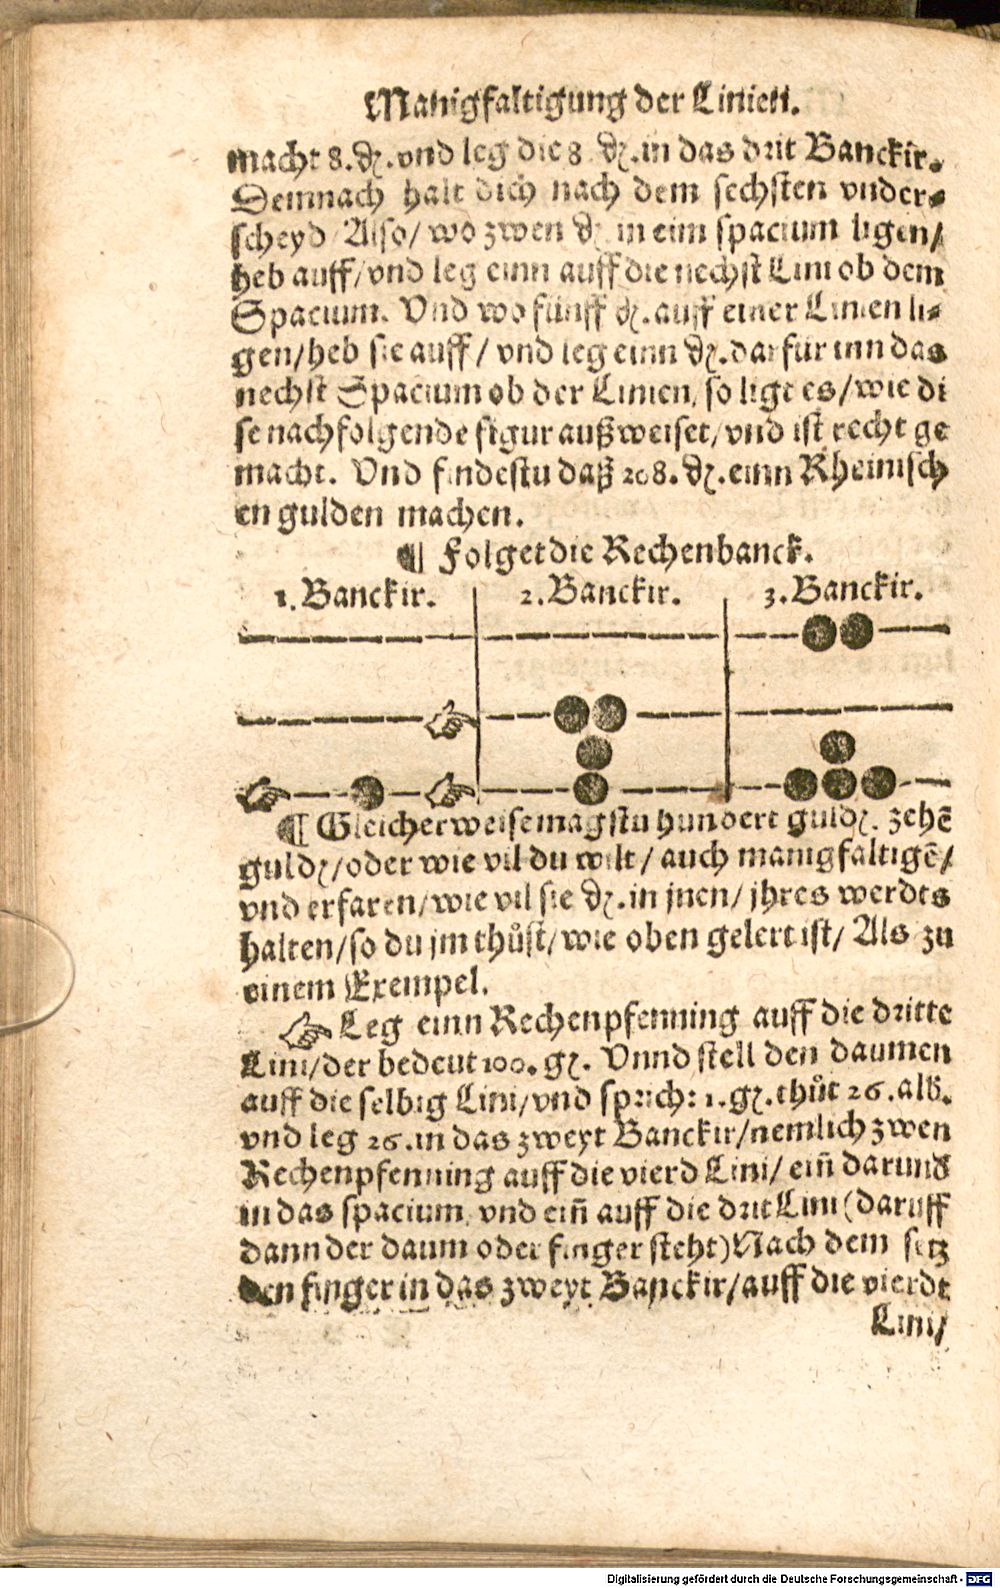 Manigfaltigung der Linien.
macht 8. ₰. vnd leg die 8 ₰. in das drit Banckir.
Demnach halt dich nach dem sechsten vnder-
scheyd Also/ wo zwen ₰ in eim spacium ligen/
heb auff/ vnd leg einn auff die nechst Lini ob dem
Spacium. Vnd wo fünff ₰. auff einer Linien li-
gen/ heb sie auff/ vnd leg einn ₰. darfür inn das
nechst Spacium ob der Linien, so ligt es/ wie di
se nachfolgende figur außweiset/ vnd ist recht ge
macht. Vnd findestu daß 208. ₰. einn Rheinisch
en gulden machen.
¶ Folget die Rechenbanck.
1. Banckir. 2. Banckir. 3. Banckir.
¶ Gleicher weise magstu hundert guld₰. zehē
guld₰/ oder wie vil du wilt/ auch manigfaltigē/
vnd erfaren/ wie vil sie ₰. in jnen/ jhres werdts
halten/ so du jm thůst/ wie oben gelert ist/ Als zu
einem Exempel.
☞ Leg einn Rechenpfenning auff die dritte
Lini/ der bedeut 100. g₰. Vnnd stell den daumen
auff die selbig Lini/ vnd sprich: 1. g₰. thůt 26. alb.
vnd leg 26. in das zweyt Banckir/ nemlich zwen
Rechenpfenning auff die vierd Lini/ eiñ darund
in das spacium, vnd eiñ auff die drit Lini (daruff
dann der daum oder finger steht) Nach dem setz
den finger in das zweyt Banckir/ auff die vierdt
Lini/
Digitalisierung gefördert durch die Deutsche Forschungsgemeinschaft - DFG